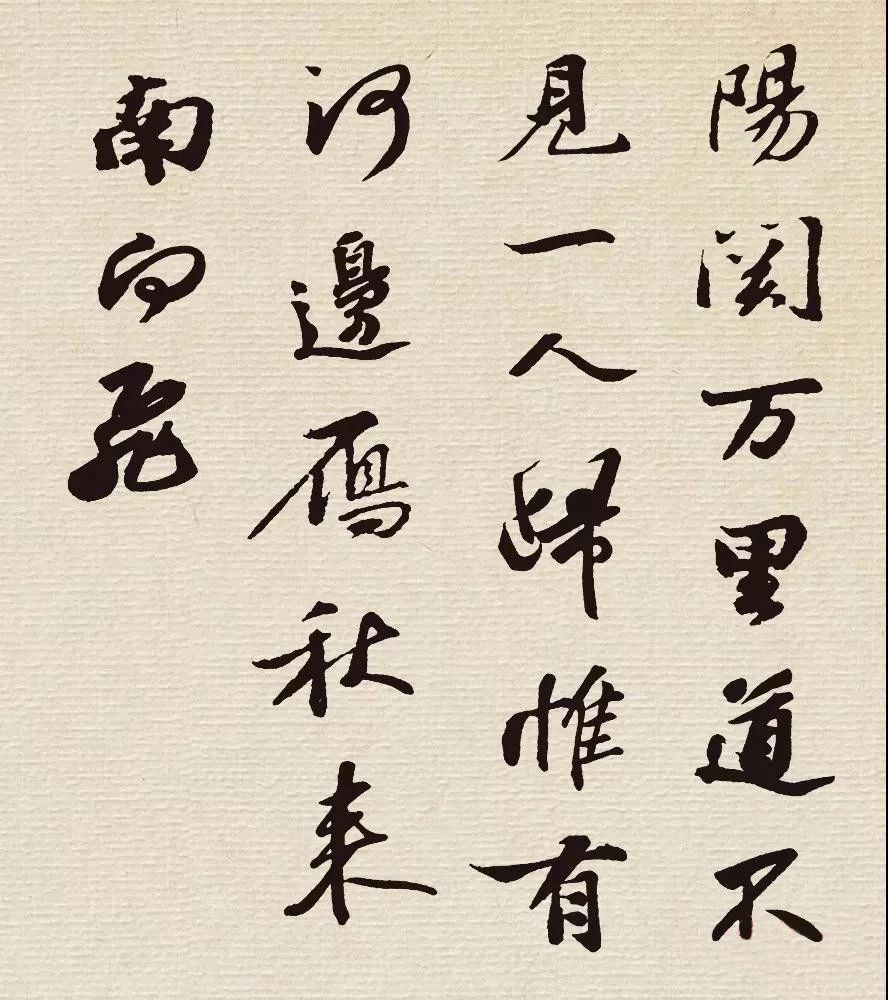 陽関万里道不
見一人歸惟有
河邊鴈秋来
南向飛